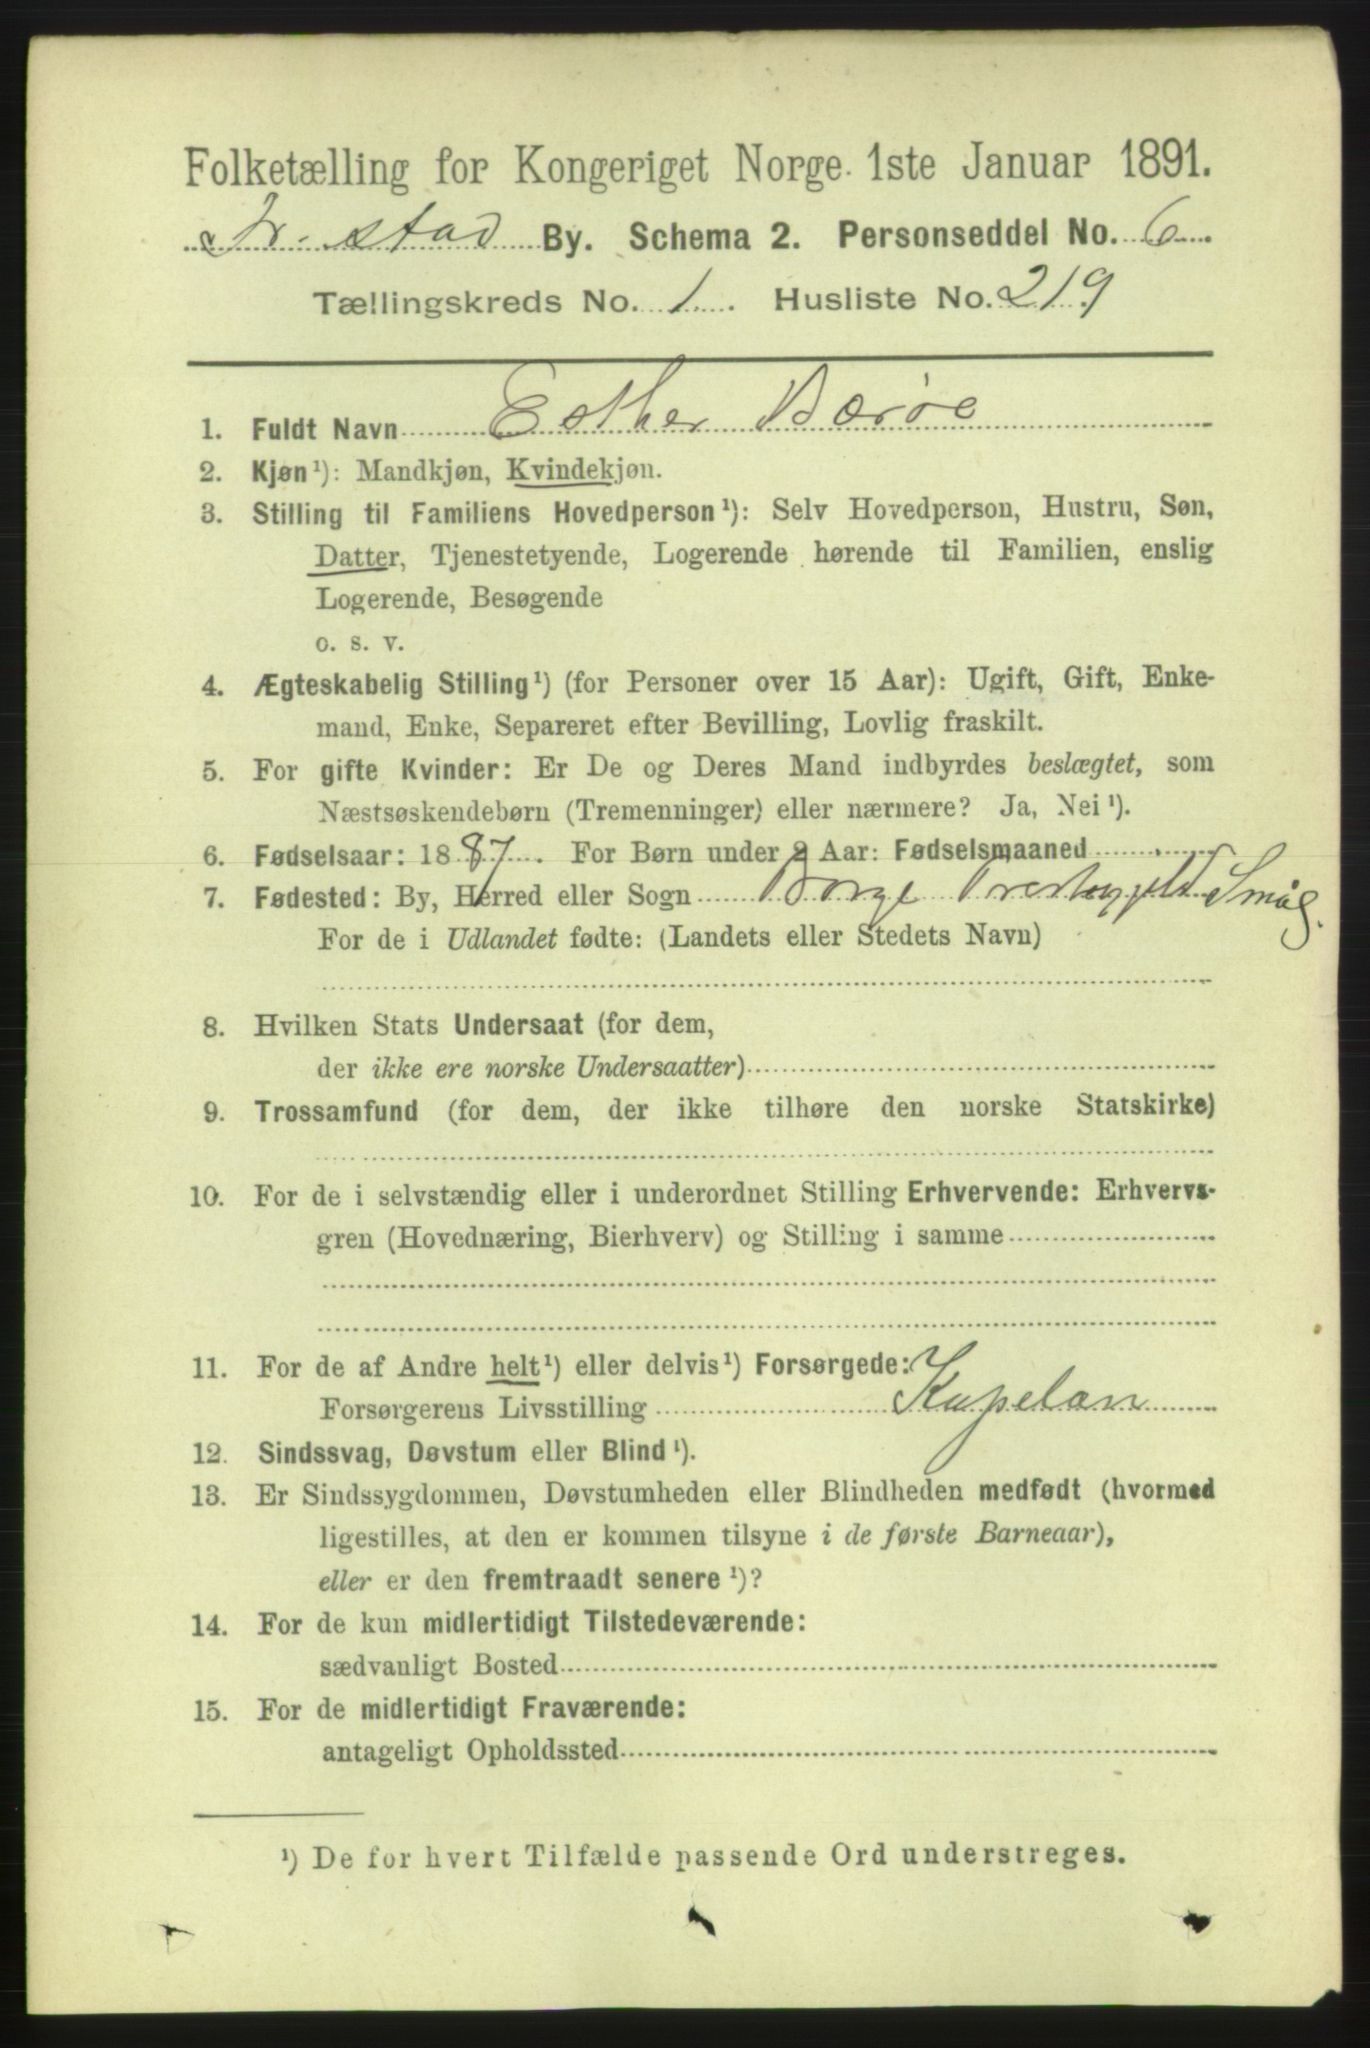 Folketælling for Kongeriget Norge 1ste Januar 1891.
Fr. stad By. Schema 2. Personseddel No. 6
Tællingskreds No. 1. Husliste No. 219
1. Fuldt Navn Esther Bærøe
2. Kjøn¹): Mandkjøn, Kvindekjøn.
3. Stilling til Familiens Hovedperson¹): Selv Hovedperson, Hustru, Søn,
Datter, Tjenestetyende, Logerende hørende til Familien, enslig
Logerende, Besøgende
o. s. v.
4. Ægteskabelig Stilling¹) (for Personer over 15 Aar): Ugift, Gift, Enke-
mand, Enke, Separeret efter Bevilling, Lovlig fraskilt.
5. For gifte Kvinder: Er De og Deres Mand indbyrdes beslægtet, som
Næstsøskendebørn (Tremenninger) eller nærmere? Ja, Nei¹).
6. Fødselsaar: 1887. For Børn under 2 Aar: Fødselsmaaned
7. Fødested: By, Herred eller Sogn Borge Prestegjeld Smål.
For de i Udlandet fødte: (Landets eller Stedets Navn)
8. Hvilken Stats Undersaat (for dem,
der ikke ere norske Undersaatter)
9. Trossamfund (for dem, der ikke tilhøre den norske Statskirke)
10. For de i selvstændig eller i underordnet Stilling Erhvervende: Erhvervs-
gren (Hovednæring, Bierhverv) og Stilling i samme
11. For de af Andre helt¹) eller delvis¹) Forsørgede:
Forsørgerens Livsstilling Kapelan
12. Sindssvag, Døvstum eller Blind¹).
13. Er Sindssygdommen, Døvstumheden eller Blindheden medfødt (hvormed
ligestilles, at den er kommen tilsyne i de første Barneaar),
eller er den fremtraadt senere¹)?
14. For de kun midlertidigt Tilstedeværende:
sædvanligt Bosted
15. For de midlertidigt Fraværende:
antageligt Opholdssted
¹) De for hvert Tilfælde passende Ord understreges.